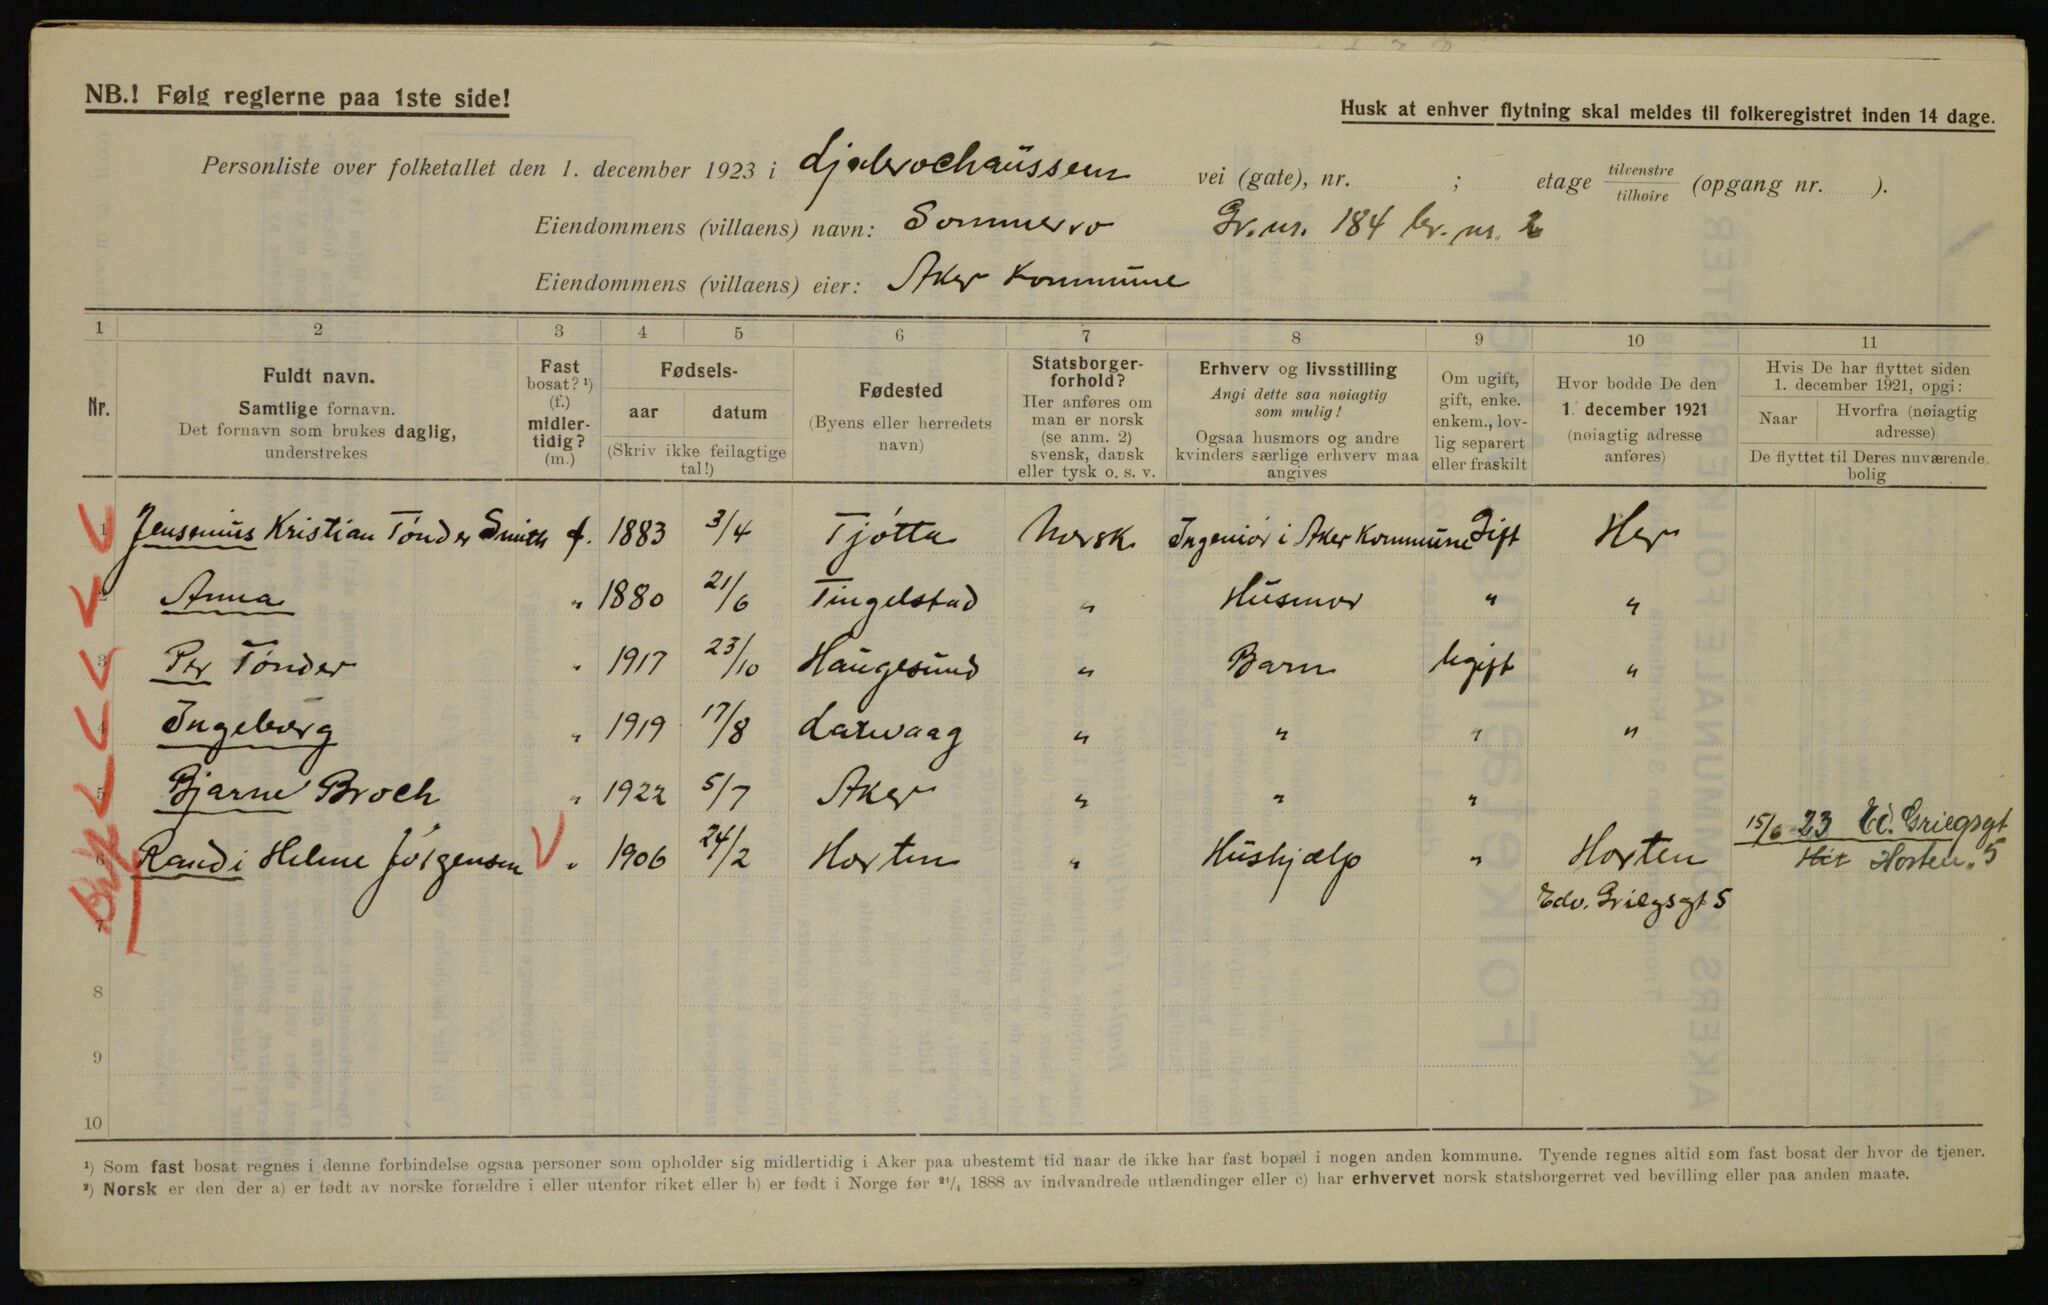 NB.! Følg reglerne paa 1ste side!
Husk at enhver flytning skal meldes til folkeregistret inden 14 dage.
Personliste over folketallet den 1. december 1923 i Ljabrochaussem vei (gate), nr. ; etage tilvenstre tilhøire (opgang nr. ).
Eiendommens (villaens) navn: Sommerro Gr.nr. 184 br.nr. 2
Eiendommens (villaens) eier: Aker Kommune
1 2 3 4 5 6 7 8 9 10 11
Nr.
Fuldt navn.
Samtlige fornavn.
Det fornavn som brukes daglig,
understrekes
Fast
bosat? ¹)
(f.)
midler-
tidig?
(m.)
Fødsels-
aar datum
(Skriv ikke feilagtige
tal!)
Fødested
(Byens eller herredets
navn)
Statsborger-
forhold?
Her anføres om
man er norsk
(se anm. 2)
svensk, dansk
eller tysk o. s. v.
Erhverv og livsstilling
Angi dette saa nøiagtig
som mulig!
Ogsaa husmors og andre
kvinders særlige erhverv maa
angives
Om ugift,
gift, enke.
enkem., lov-
lig separert
eller fraskilt
Hvor bodde De den
1. december 1921
(nøiagtig adresse
anføres)
Hvis De har flyttet siden
1. december 1921, opgi:
Naar Hvorfra (nøiagtig
adresse)
De flyttet til Deres nuværende
bolig
1 Jensenius Kristian Tønder Smith f. 1883 3/4 Tjøtta Norsk Ingeniør i Aker Kommune Gift Her
2 Anna " 1880 21/6 Tingelstad " Husmor " "
3 Per Tønder " 1917 23/10 Haugesund " Barn Ugift "
4 Ingeborg " 1919 17/8 Larvaag " " " "
5 Bjarne Broch " 1922 5/7 Aker " " "
15/6 23 Ed. Griegsgt
6 Randi Helene Jørgensen " 1906 24/2 Horten " Hushjælp " Horten Horten 5
Edv. Griegsgt 5
7
8
9
10
¹) Som fast bosat regnes i denne forbindelse ogsaa personer som opholder sig midlertidig i Aker paa ubestemt tid naar de ikke har fast bopæl i nogen anden kommune. Tyende regnes altid som fast bosat der hvor de tjener.
²) Norsk er den der a) er født av norske forældre i eller utenfor riket eller b) er født i Norge før ²¹/₄ 1888 av indvandrede utlændinger eller c) har erhvervet norsk statsborgerret ved bevilling eller paa anden maate.